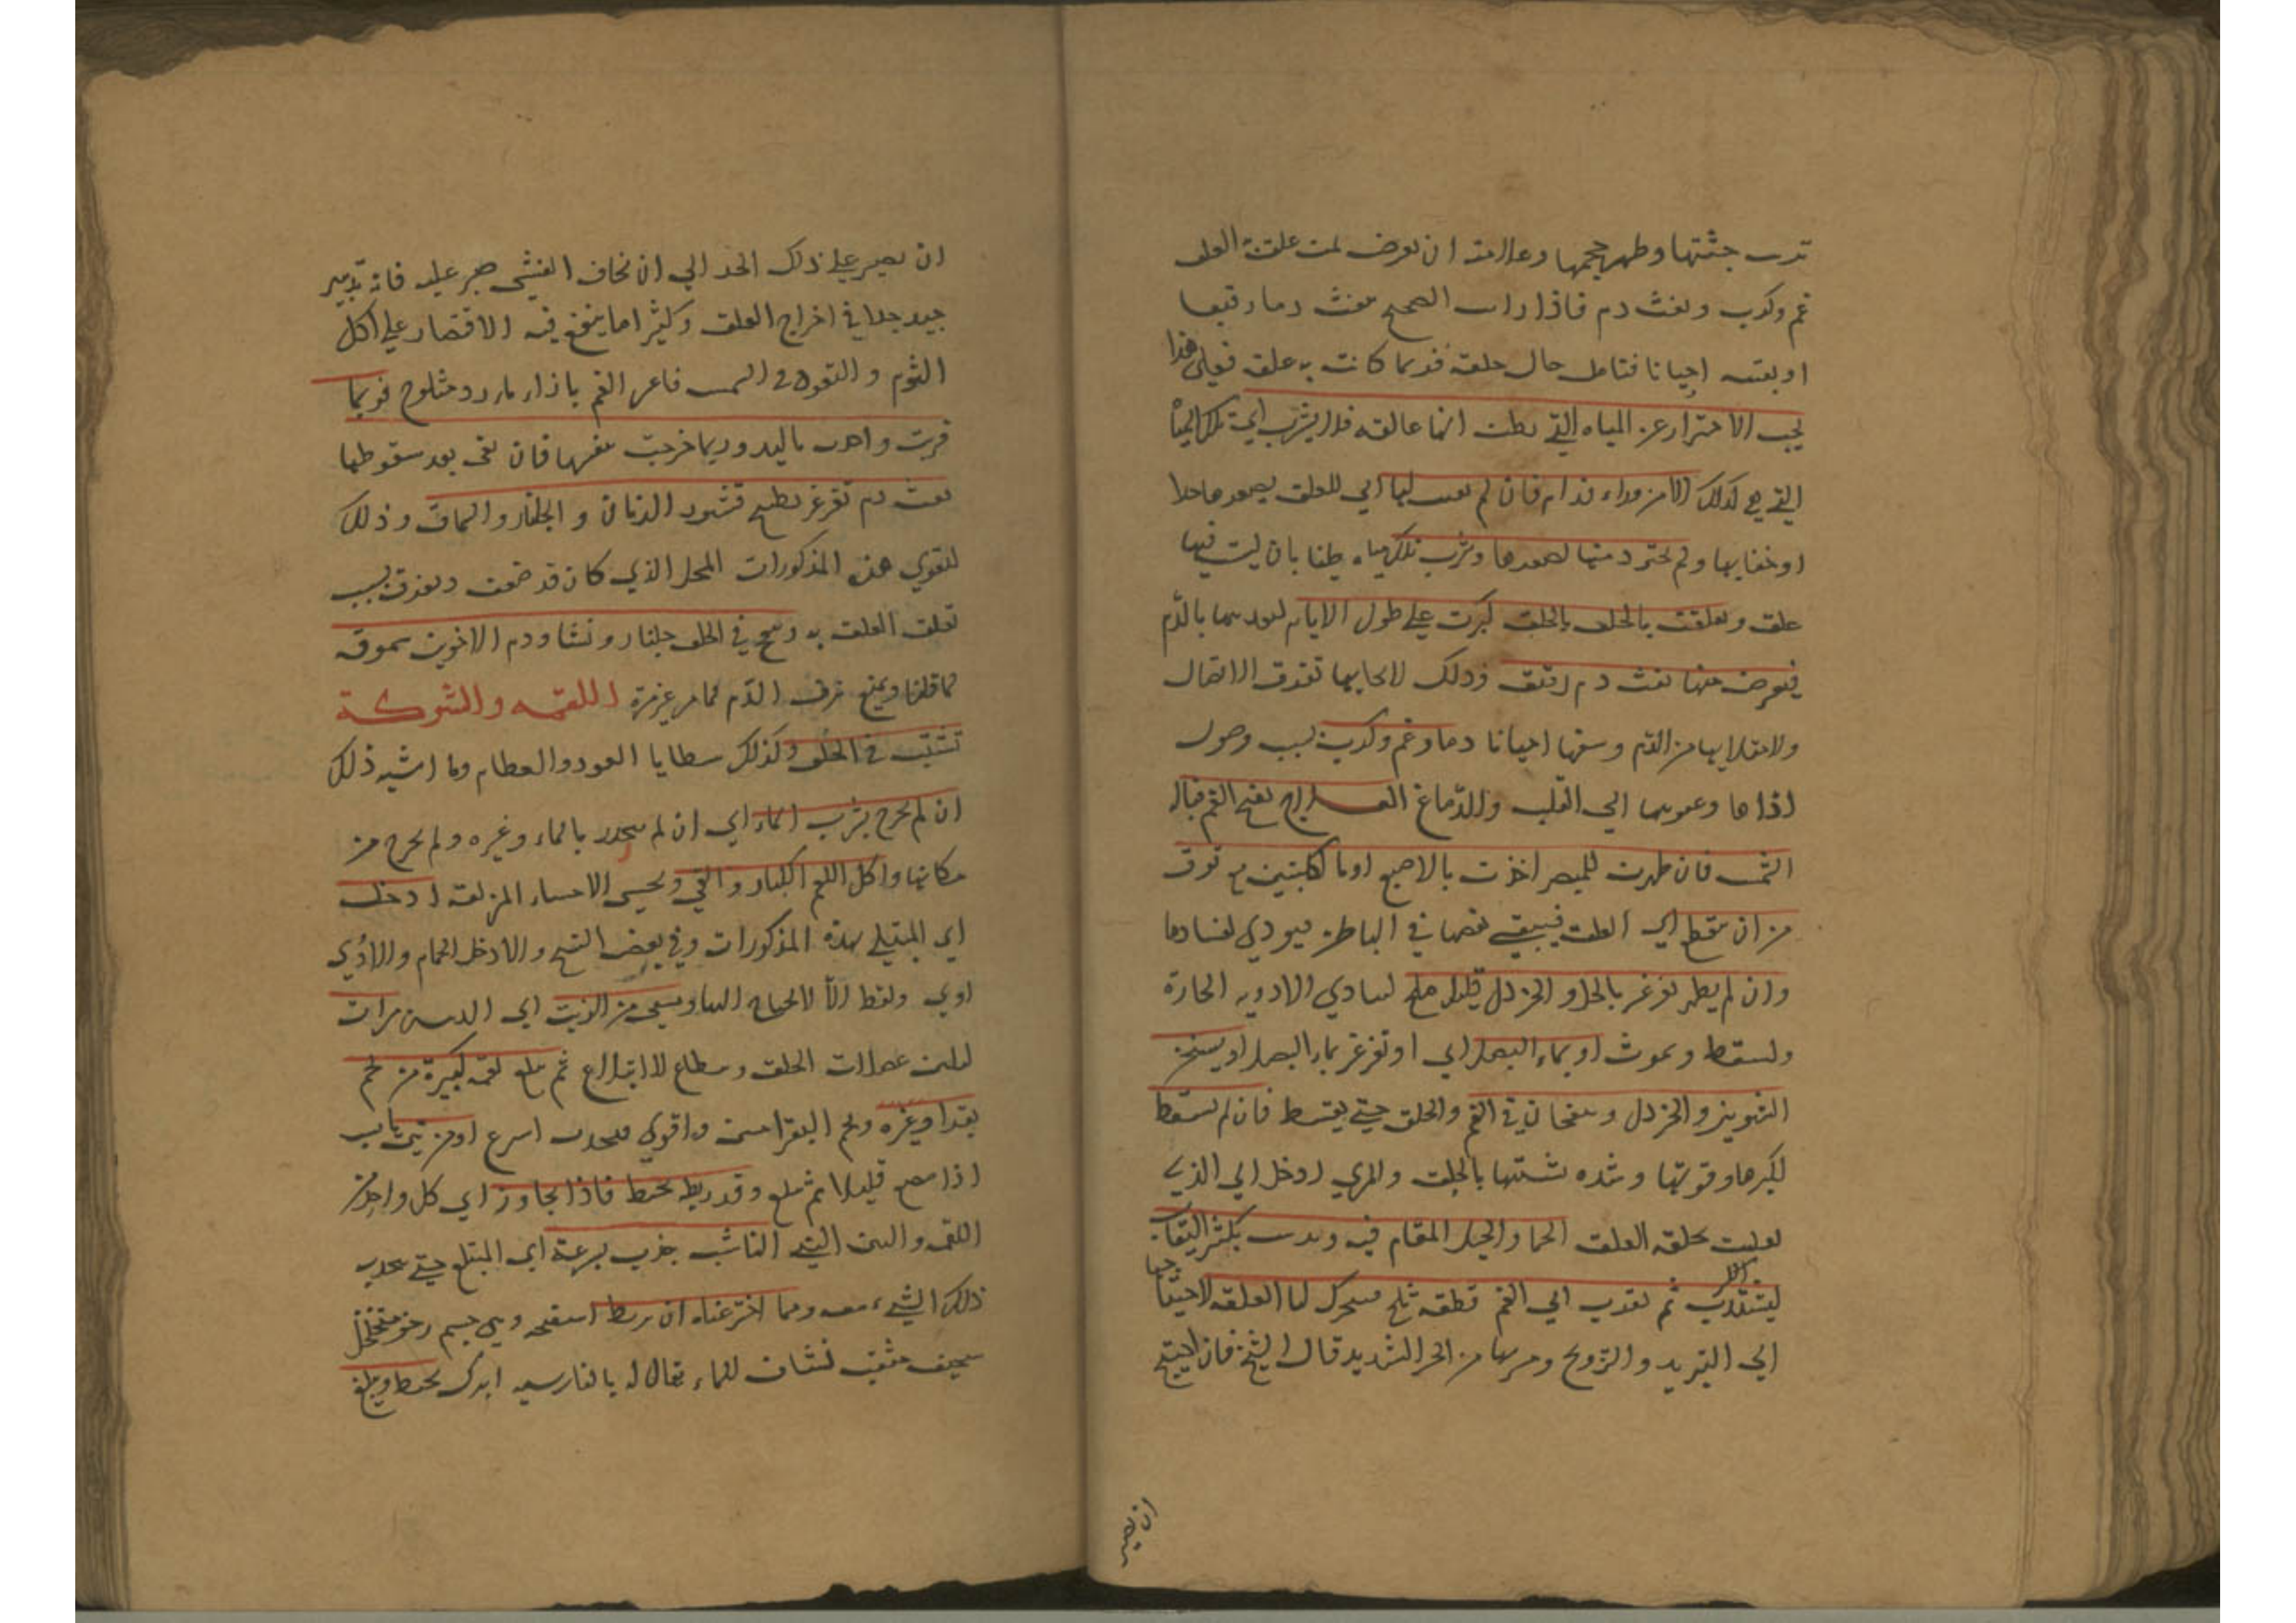 جثتها وظهر حجمها وعلامته ان يعرض لمن علقت العلق
غم وكرب ونفث دم فاذا رايت الصحيح ينفث دما رقيقا
او يقيئه احيانا فتامل حال حلقه فربما كانت به علقة فعلى هذا
يجب الاحتراز عن المياه التي يظن انها عالقه فلا يشرب اي تلك المياه
التي هي كذلك الا من وراء فدام فان لم
او خفايها ولم يحترز منها لصغرها وشرب تلك المياه ظنا بان ليت فيها
علق وتعلقت بالحلق بالحلق كبرت على طول الايام بالدم
فيعرض منها نفث دم رقيق وذلك تفرق الاتصال
ولامتلايها من الدم احيانا دما وغم وكرب بسبب وصول
اذاها الي القلب والدماغ العلاج يفتح الفم قبالة
الشمس فان ظهرت للبصر اخذت بالاصبع او بالكلبتين مع توق
من ان ينقطع اي العلق فيبقى بعضها في الباطن فيودي لفسادها
وان لم يظهر تغرغر بالخل والخردل قليل ملح الادويه الحارة
ولسقط ويموت او بماء البصل اي او تغرغر بماء البصل او يسخن
الشونيز والخردل وينفخان في الفم والحلق حتى يسقط فان لم تسقط
لكبرها وقوتها وشده تشبثها بالحلق والمري ادخل اي الذي
بحلقه العلق الحمام والحيل المقام فيه
ثم يقرب الي الفم قطعة ثلج لها العلقه لاحتياجها
الى التبريد والترويح وهربها من الحر الشديد قال الشيخ فان احتيج
ان يصير
ان يصير على ذلك الحد الي ان يخاف الغشي صبر عليه فانه تدبير
جيد جدا في اخراج العلق وكثيرا ما ينفع فيه الاقتصار على اكل
الثوم والقعود في الشمس فاغر الفم باذاء ماء بارد ومثلوج فربما
قربت واخذت باليد وربما خرجت بنفسها فان بقي بعد سقوطها
نفث دم تغرغر بطبيخ قشور الرمان والجلنار والسماق وذلك
لتقوي هذه المذكورات المحل الذي كان قد ضعف وتفرق بسبب
تعلق العلق به وينفخ في الحلق جلنار ونشا ودم الاخوين مسحوقه
لما قلنا ويمنع نزف الدم كما مر غير مرة اللقمه والشوكة
تنشب في الحلق وكذلك شظايا العود والعظام وما اشبه ذلك
ان لم يخرج بشرب الماء اي ان لم ينحدر بالماء وغيره ولم يخرج من
مكانها واكل اللقم الكبار والقي وتحسي الاحساء المزلقه ادخل
اي المبتلي بهذه المذكورات وفي بعض النسخ والا دخل الحمام والا اذي
اوي ولفظ الا لا يحتاج اليها ويسقى من الزيت اي الدهن مرات
ليلين عضلات الحلق ويطاوع للابتلاع ثم يبلع لقمه كبيرة من لحم
بقر او غيره ولحم البقر احسن واقوي اسرع او من تين يابس
اذا مضغ قليلا ثم بلع وقد ربط بخيط فاذا تجاوز اي كل واحد من
اللقمه والتين الشي الناشب جذب بسرعة اي المبتلع حتى يجذب
ذلك الشيء معه ومما اخترعناه ان يربط اسفنجه وهي جسم رخو متخلخل
سخيف مثقب نشاف للماء يقال له بالفارسيه ابرك بخيط ويبلع